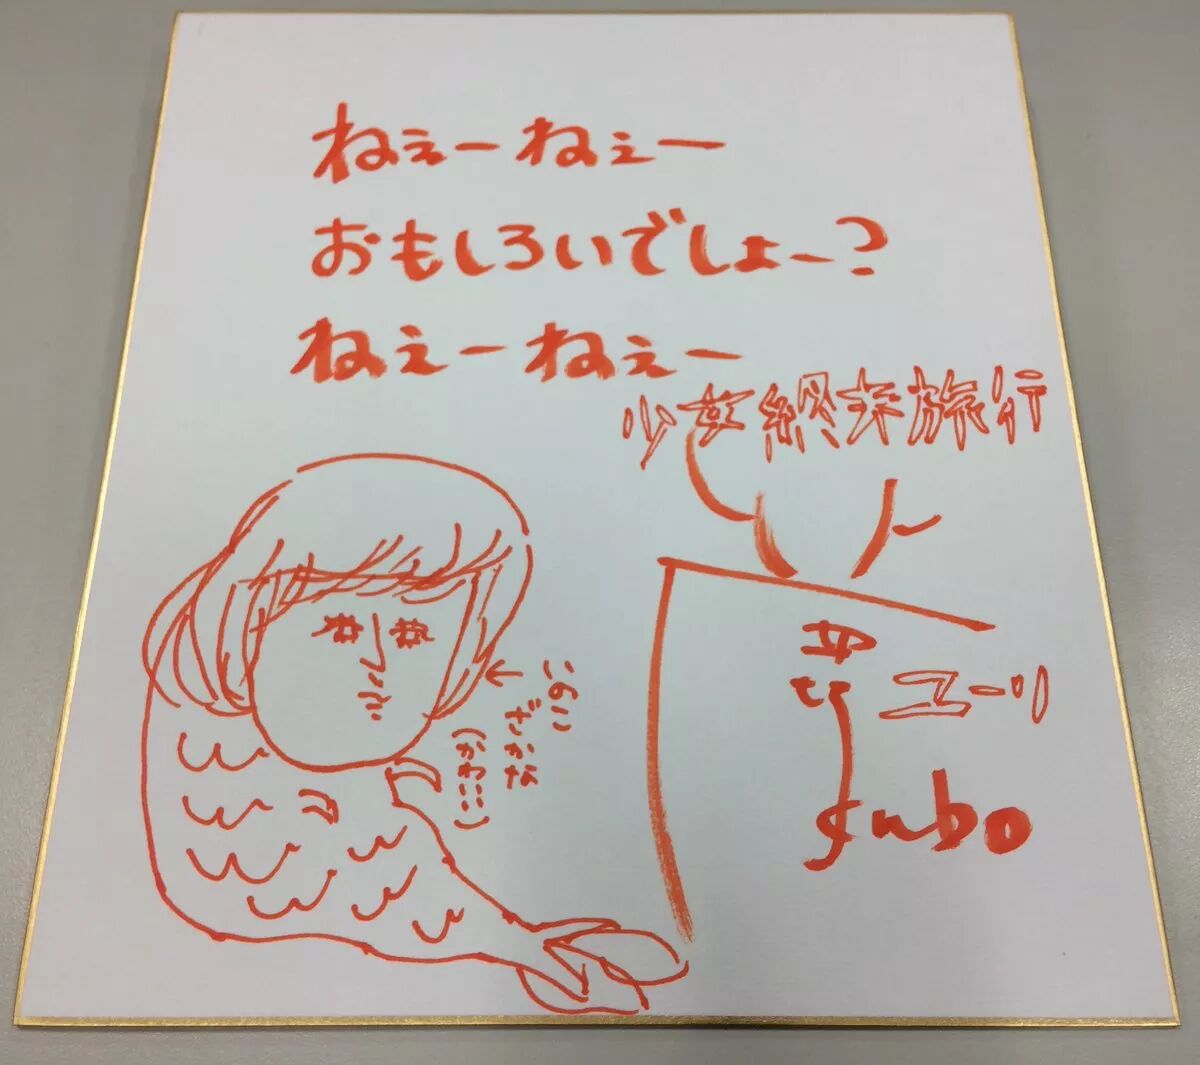 ねぇーねぇー
おもしろいでしょー?
ねぇーねぇー
少女終末旅行
ユーリ
いのこ
ざかな
(かわいい)
kubo